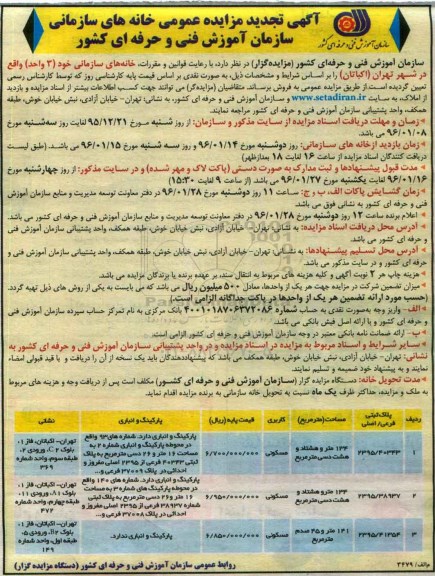 آگهی تجدید مزایده عمومی خانه های سازمانی
سازمان آموزش فنی و حرفه ای کشور
سازمان آموزش فنی و حرفه‌ای کشور (مزایده‌گزار) در نظر دارد، با رعایت قوانین و مقررات، خانه‌های سازمانی خود (۳ واحد) واقع
در شهر تهران (اکباتان) را بر اساس شرایط و مشخصات ذیل، به صورت نقدی بر اساس قیمت پایه کارشناسی روز که توسط کارشناس رسمی
تعیین گردیده است، از طریق مزایده عمومی به فروش برساند. متقاضیان (مزایده‌گر) می توانند جهت کسب اطلاعات بیشتر از اسناد مزایده و بازدید
از املاک، به سایت www.setadiran.ir و سازمان آموزش فنی و حرفه ای کشور، به نشانی: تهران - خیابان آزادی، نبش خیابان خوش، طبقه
همکف، واحد پشتیبانی سازمان آموزش فنی و حرفه ای کشور مراجعه نمایند.
زمان و مهلت دریافت اسناد مزایده از سایت مذکور و سازمان: از روز شنبه مورخ ۹۵/۱۲/۲۱ لغایت روز سه‌شنبه مورخ
۹۶/۰۱/۰۸ می باشد.
زمان بازدید از خانه های سازمانی: روز دوشنبه مورخ ۹۶/۰۱/۱۴ و روز سه شنبه مورخ ۹۶/۰۱/۱۵ می باشد. (طبق لیست
دریافت کنندگان اسناد مزایده از ساعت ۱۶ لغایت ۱۸ بعدازظهر)
مدت قبول پیشنهادها و ثبت مدارک به صورت دستی (پاکت لاک و مهر شده) و در سایت مذکور: از روز چهارشنبه مورخ
۹۶/۰۱/۱۶ لغایت یکشنبه مورخ ۹۶/۰۱/۲۷ می باشد. (از ساعت ۹ لغایت ۱۵:۳۰)
زمان گشایش پاکات الف، ب و ج: ساعت ۱۱ روز دوشنبه مورخ ۹۶/۰۱/۲۸ در دفتر معاونت توسعه مدیریت و منابع سازمان آموزش
فنی و حرفه ای کشور به نشانی فوق می باشد.
اعلام برنده ساعت ۱۲ روز دوشنبه مورخ ۹۶/۰۱/۲۸ در دفتر معاونت توسعه مدیریت و منابع سازمان آموزش فنی و حرفه ای کشور می باشد.
آدرس محل دریافت اسناد مزایده: به نشانی تهران - خیابان آزادی، نبش خیابان خوش، طبقه همکف، واحد پشتیبانی سازمان آموزش فنی
و حرفه ای کشور می باشد
آدرس محل تسلیم پیشنهادها: به نشانی تهران- خیابان آزادی، نبش خیابان خوش، طبقه همکف، واحد پشتیبانی سازمان آموزش فنی و
حرفه ای کشور و در سایت مذکور می باشد.
هزینه چاپ هر ۲ نوبت آگهی و کلیه هزینه های مربوط به انتقال سند، بر عهده برنده یا برندگان مزایده می باشد.
میزان تضمین شرکت در مزایده جهت هر یک از واحدها، معادل ۵۰۰ میلیون ریال می باشد که می بایست به یکی از روش های ذیل تهیه گردد.
(حسب مورد ارائه تضمین هر یک از واحدها در پاکت جداگانه الزامی است.)
الف - واریز وجه به‌صورت نقدی به حساب شماره ۴۰۰۱۰۱۸۷۰۶۳۷۲۰۸۶ بانک مرکزی به نام تمرکز حساب سپرده سازمان آموزش فنی
و حرفه ای کشور و یا ارائه اصل فیش بانکی می باشد.
ب - ارائه ضمانت نامه بانکی معتبر در وجه سازمان آموزش فنی و حرفه ای کشور الزامی است.
سایر شرایط و اسناد مربوط به مزایده در اسناد مزایده و در واحد پشتیبانی سازمان آموزش فنی و حرفه ای کشور به
نشانی: تهران- خیابان آزادی، نبش خیابان خوش، طبقه همکف می باشد که پیشنهاددهندگان باید یک نسخه از آن را دریافت و با قید قبولی امضاء
نمایند و به پیشنهاد خود ضمیمه و تسلیم نمایند.
مدت تحویل خانه: دستگاه مزایده گزار (سازمان آموزش فنی و حرفه ای کشور) مکلف است پس از دریافت وجه و هزینه های مربوط
به ملک و مزایده، حداکثر ظرف یک ماه نسبت به تحویل خانه سازمانی به برنده مزایده اقدام نماید.
ردیف پلاک ثبتی فرعی/ اصلی مساحت(مترمربع) کاربری قیمت پایه(ریال) پارکینگ و انباری نشانی
۱ ۲۳۹۵/۴۰۳۴۳ ۱۳۴ متر و هشتاد و هشت دسی مترمربع مسکونی ۶/۷۰۰/۰۰۰/۰۰۰
۲ ۲۳۹۵/۳۸۹۳۷ ۱۳۴ متر و هشتاد و هشت دسی مترمربع مسکونی ۶/۹۵۰/۰۰۰/۰۰۰
۳ ۲۳۹۵/۴۱۲۵۴ ۱۴۱ متر و ۴۵ صدم مترمربع مسکونی ۶/۸۵۰/۰۰۰/۰۰۰ پارکینگ و انباری ندارد.
روابط عمومی سازمان آموزش فنی و حرفه ای کشور (دستگاه مزایده گزار)